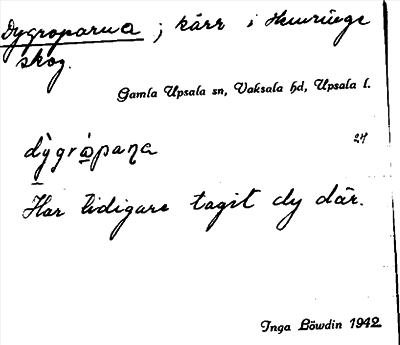 Dygroparna ; kärr i Hemringe
skog.
Gamla Upsala sn, Vaksala hd, Upsala l.
dỳgrópaṇa
24
Har tidigare tagit dy där.
Inga Löwdin 1942